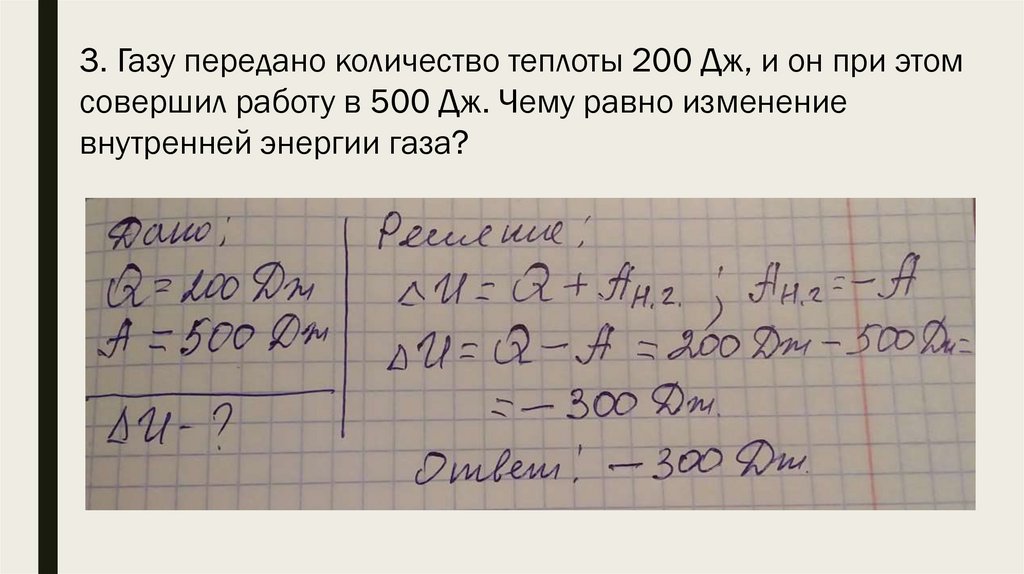 3. Газу передано количество теплоты 200 Дж, и он при этом
совершил работу в 500 Дж. Чему равно изменение
внутренней энергии газа?
Дано:
Q = 200 Дж
A = 500 Дж
ΔU - ?
Решение:
ΔU = Q + Aн.г. ; Aн.г = - A
ΔU = Q - A = 200 Дж - 500 Дж =
= - 300 Дж.
Ответ: - 300 Дж.